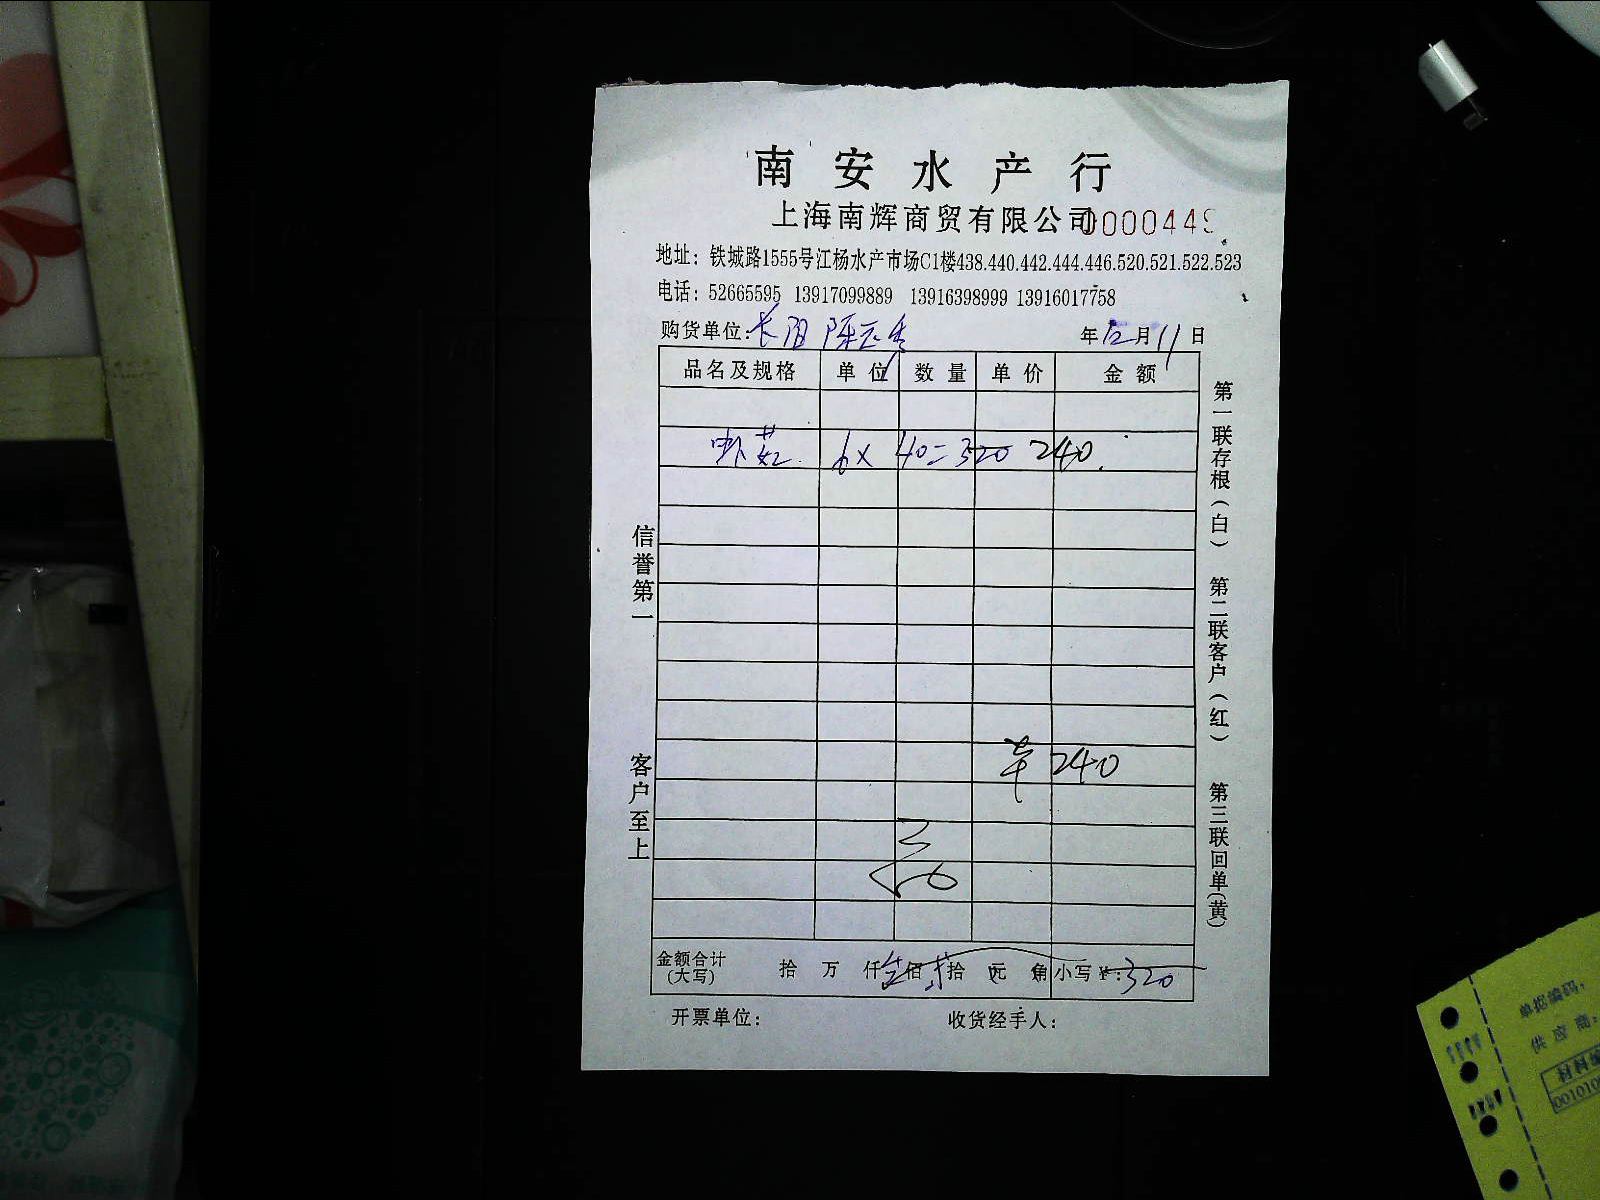 南安水产行
上海南辉商贸有限公司 0000449
地址：铁城路1555号江杨水产市场C1楼438.440.442.444.446.520.521.522.523
电话：52665595 13917099889 13916398999 13916017758
购货单位：长阳 年12月11日
品名及规格 单位 数量 单价 金额
虾菇 6x 40=320 240.
240
金额合计(大写) 拾 万 仟 叁 佰 贰 拾 元 角 小写￥：320
开票单位： 收货经手人：
信誉第一 客户至上
第一联存根（白） 第二联客户（红） 第三联回单（黄）
单据编码：
供应商：
材料编
001010